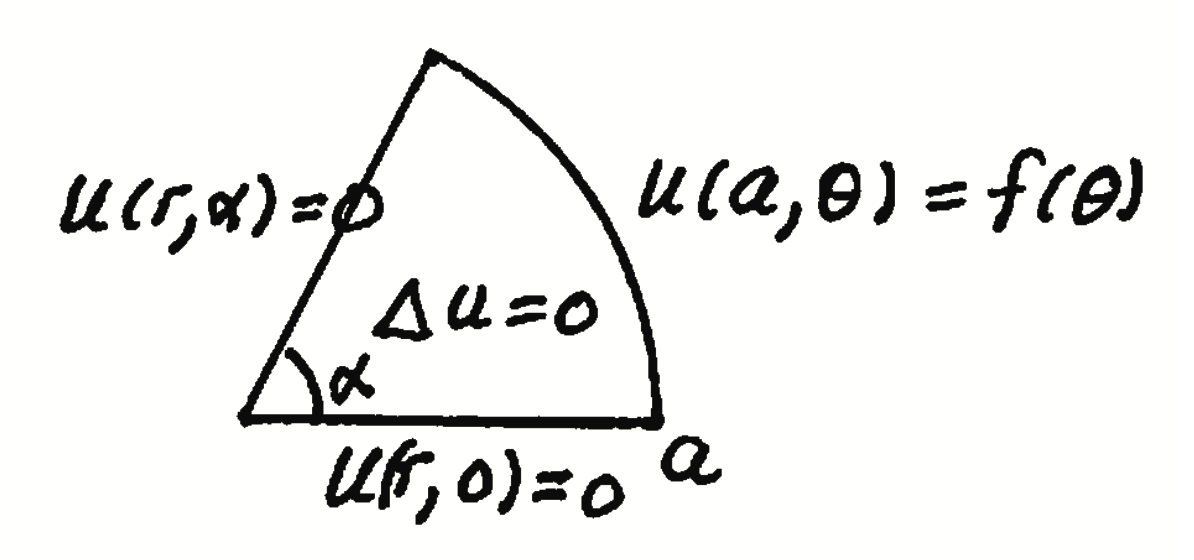 u(r,α)=0
u(a,θ)=f(θ)
Δu=0
α
u(r,0)=0
a